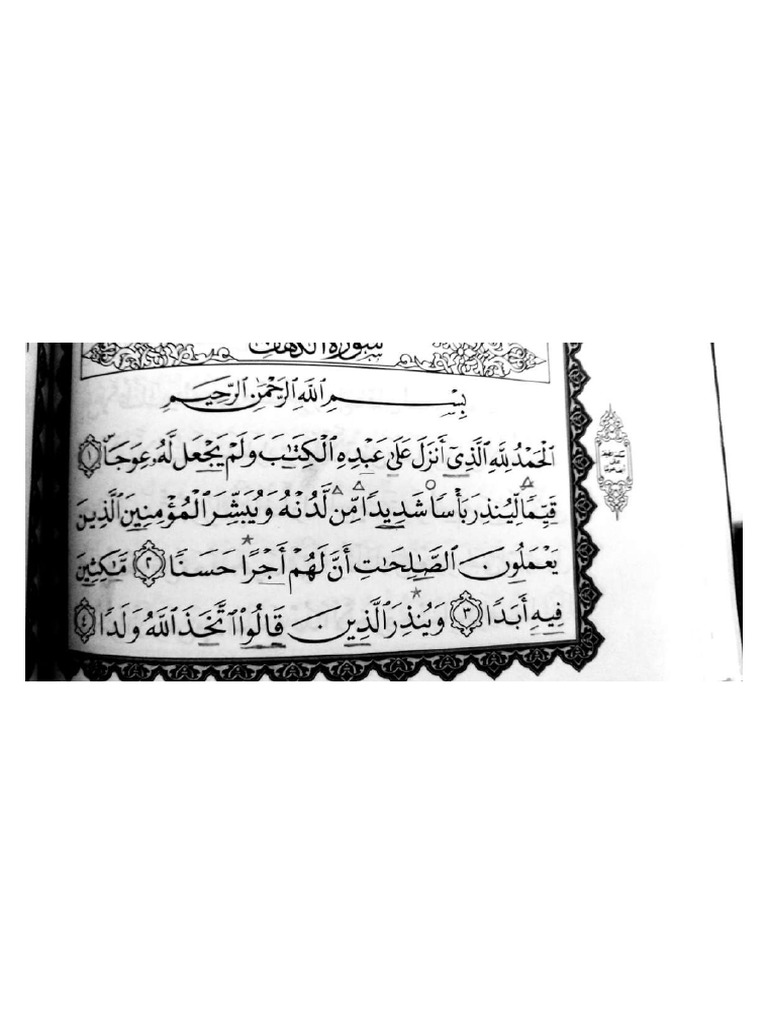 سورة الكهف
بِسْمِ ٱللَّهِ ٱلرَّحْمَٰنِ ٱلرَّحِيمِ
ٱلْحَمْدُ لِلَّهِ ٱلَّذِىٓ أَنزَلَ عَلَىٰ عَبْدِهِ ٱلْكِتَٰبَ وَلَمْ يَجْعَل لَّهُۥ عِوَجَاۜ ١
قَيِّمًا لِّيُنذِرَ بَأْسًا شَدِيدًا مِّن لَّدُنْهُ وَيُبَشِّرَ ٱلْمُؤْمِنِينَ ٱلَّذِينَ
يَعْمَلُونَ ٱلصَّٰلِحَٰتِ أَنَّ لَهُمْ أَجْرًا حَسَنًا ٢ مَّٰكِثِينَ
فِيهِ أَبَدًا ٣ وَيُنذِرَ ٱلَّذِينَ قَالُوا۟ ٱتَّخَذَ ٱللَّهُ وَلَدًا ٤